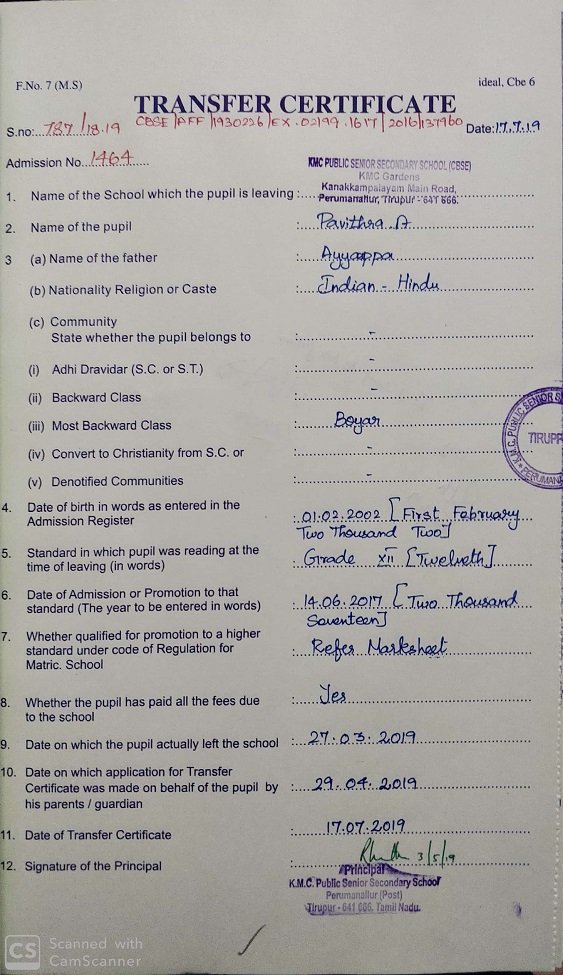 F.No. 7 (M.S)
ideal, Cbe 6
TRANSFER CERTIFICATE
CBSE/AFF/1930226/EX.02199.1617/2016/137960
S.no: 787/18.19
Date: 17.7.19
Admission No. 1464
KMC PUBLIC SENIOR SECONDARY SCHOOL (CBSE)
KMC Gardens
Kanakkampalayam Main Road,
Perumanallur, Tirupur - 641 666.
1. Name of the School which the pupil is leaving :
2. Name of the pupil : Pavithra. A
3 (a) Name of the father : Ayyappa
(b) Nationality Religion or Caste : Indian - Hindu
(c) Community
State whether the pupil belongs to : -
(i) Adhi Dravidar (S.C. or S.T.) : -
(ii) Backward Class : -
(iii) Most Backward Class : Boyar
(iv) Convert to Christianity from S.C. or : -
(v) Denotified Communities : -
K.M.C. PUBLIC SENIOR S
TIRUPP
PERUMANA
4. Date of birth in words as entered in the
Admission Register : 01.02.2002 [First February
Two Thousand Two]
5. Standard in which pupil was reading at the
time of leaving (in words) : Grade XII [Twelveth]
6. Date of Admission or Promotion to that
standard (The year to be entered in words) : 14.06.2017 [Two Thousand
Seventeen]
7. Whether qualified for promotion to a higher
standard under code of Regulation for : Refer Marksheet
Matric. School
8. Whether the pupil has paid all the fees due : Yes
to the school
9. Date on which the pupil actually left the school : 27.03.2019
10. Date on which application for Transfer
Certificate was made on behalf of the pupil by : 29.04.2019
his parents / guardian
11. Date of Transfer Certificate : 17.07.2019
12. Signature of the Principal : 3/5/19
Principal
K.M.C. Public Senior Secondary School
Perumanallur (Post)
Tirupur - 641 666. Tamil Nadu.
CS Scanned with
CamScanner